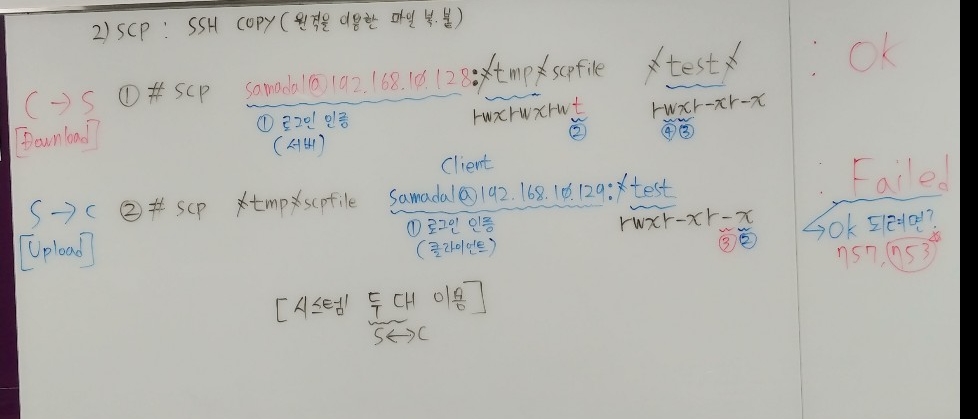 2) SCP : SSH COPY ( 원격을 이용한 파일 복.붙 )
C → S ① # SCP samadal@192.168.10.128:/tmp/scpfile /test/ : Ok
[Download] ① 로그인 인증 rwxrwxrwt rwxr-xr-x
(서버) ② ④ ③
Client
S → C ② # SCP /tmp/scpfile Samadal@192.168.10.129:/test : Failed
[Upload] ① 로그인 인증 rwxr-xr-x ↳ Ok 되려면?
(클라이언트) ③ ② 757, 753*
[시스템 두 대 이용]
S ↔ C